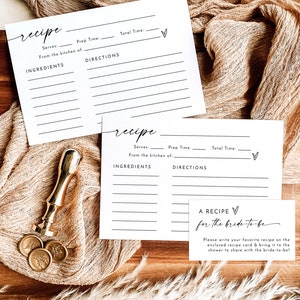 recipe
Serves: Prep Time: Total Time:
From the kitchen of:
INGREDIENTS DIRECTIONS
recipe
Serves: Prep Time: Total Time:
From the kitchen of:
INGREDIENTS DIRECTIONS
A RECIPE
for the bride-to-be
Please write your favorite recipe on the
enclosed recipe card & bring it to the
shower to share with the bride-to-be!